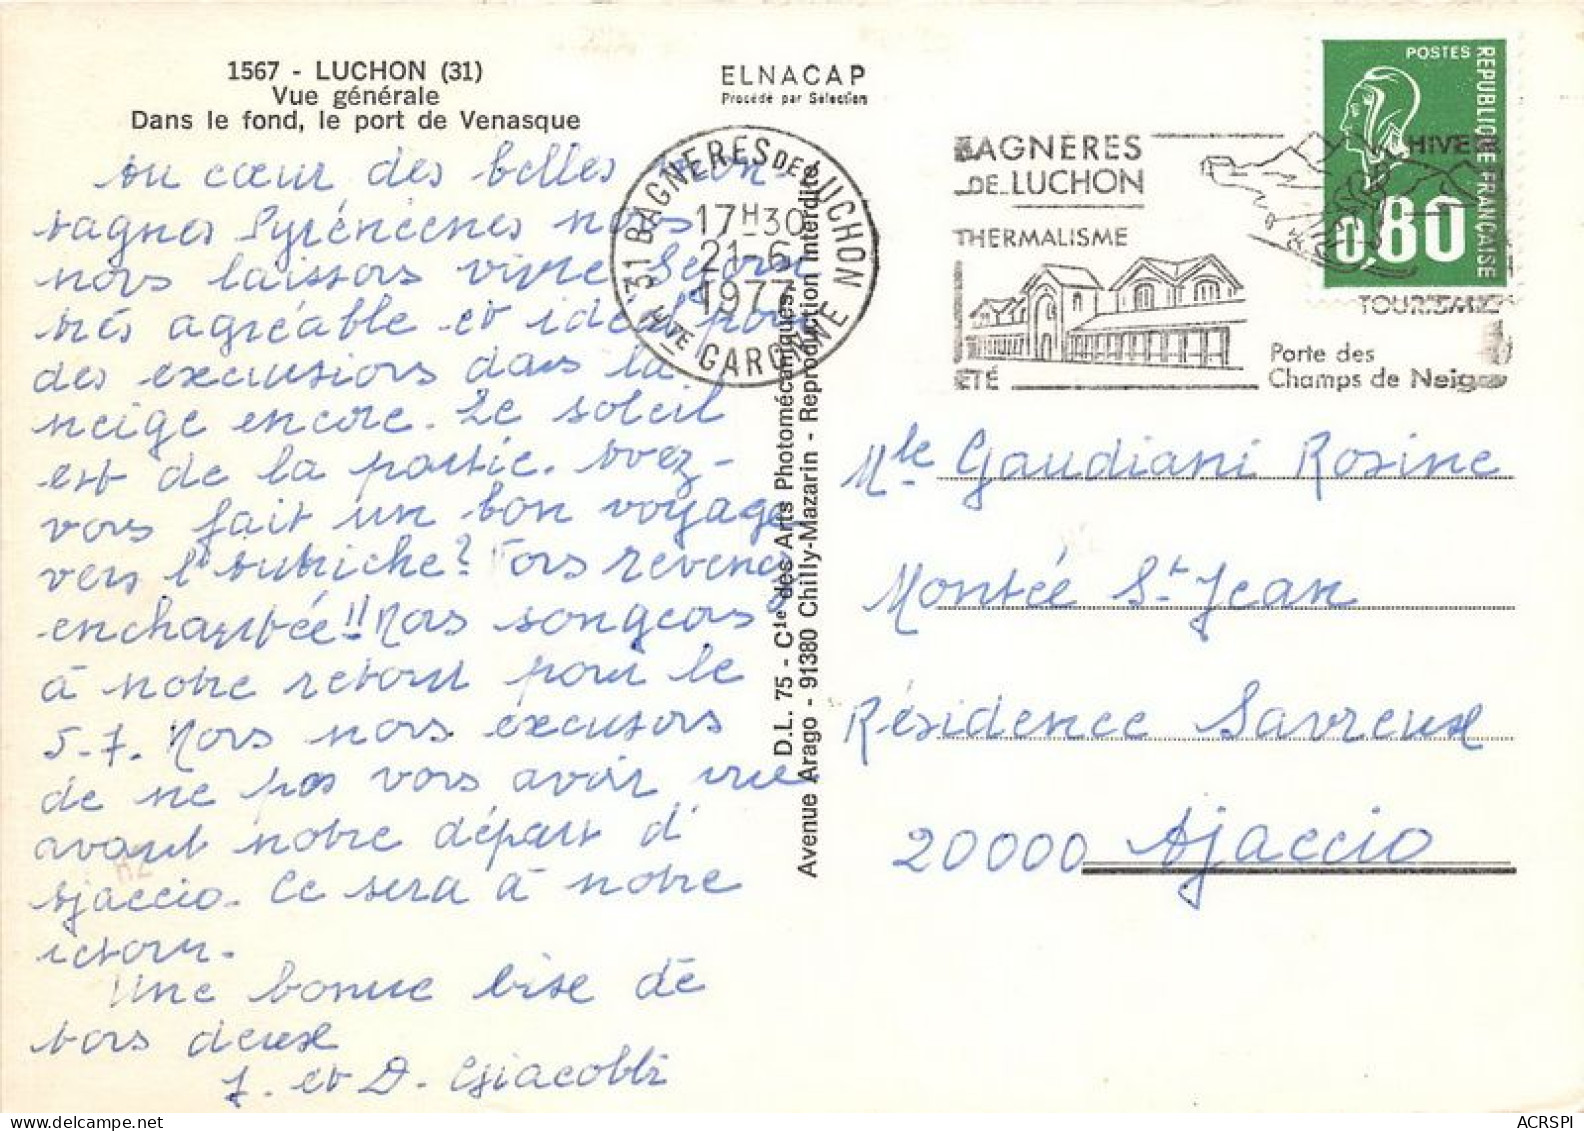 1567 - LUCHON (31)
Vue générale
Dans le fond, le port de Venasque
ELNACAP
Procédé par Sélection
Au cœur des belles Mon-
tagnes Pyrénéenes nous
nous laissons vivre. Séjour
très agréable et idéal pour
des excursions dans la
neige encore. Le soleil
est de la partie. Avez-
vous fait un bon voyage
vers l'Autriche? Tous revenez
enchantée!! Nous songeons
à notre retour pour le
5-7. Nous nous excusons
de ne pas vous avoir vue
avant notre départ d'
Ajaccio. Ce sera à notre
retour.
Une bonne bise de
tous deux
J. et D. Giacobbi
31 BAGNERES DE LUCHON
17H30
21-6
1977
HTE GARONNE
D.L. 75 - Cie des Arts Photomécaniques
Avenue Arago - 91380 Chilly-Mazarin - Reproduction Interdite
BAGNÈRES
DE LUCHON
THERMALISME
ÉTÉ
HIVER
TOURISME
Porte des
Champs de Neige
POSTES
REPUBLIQUE FRANÇAISE
0,80
Mle Gaudiani Rosine
Montée St Jean
Résidence Savreux
20000 Ajaccio
ACRSPI